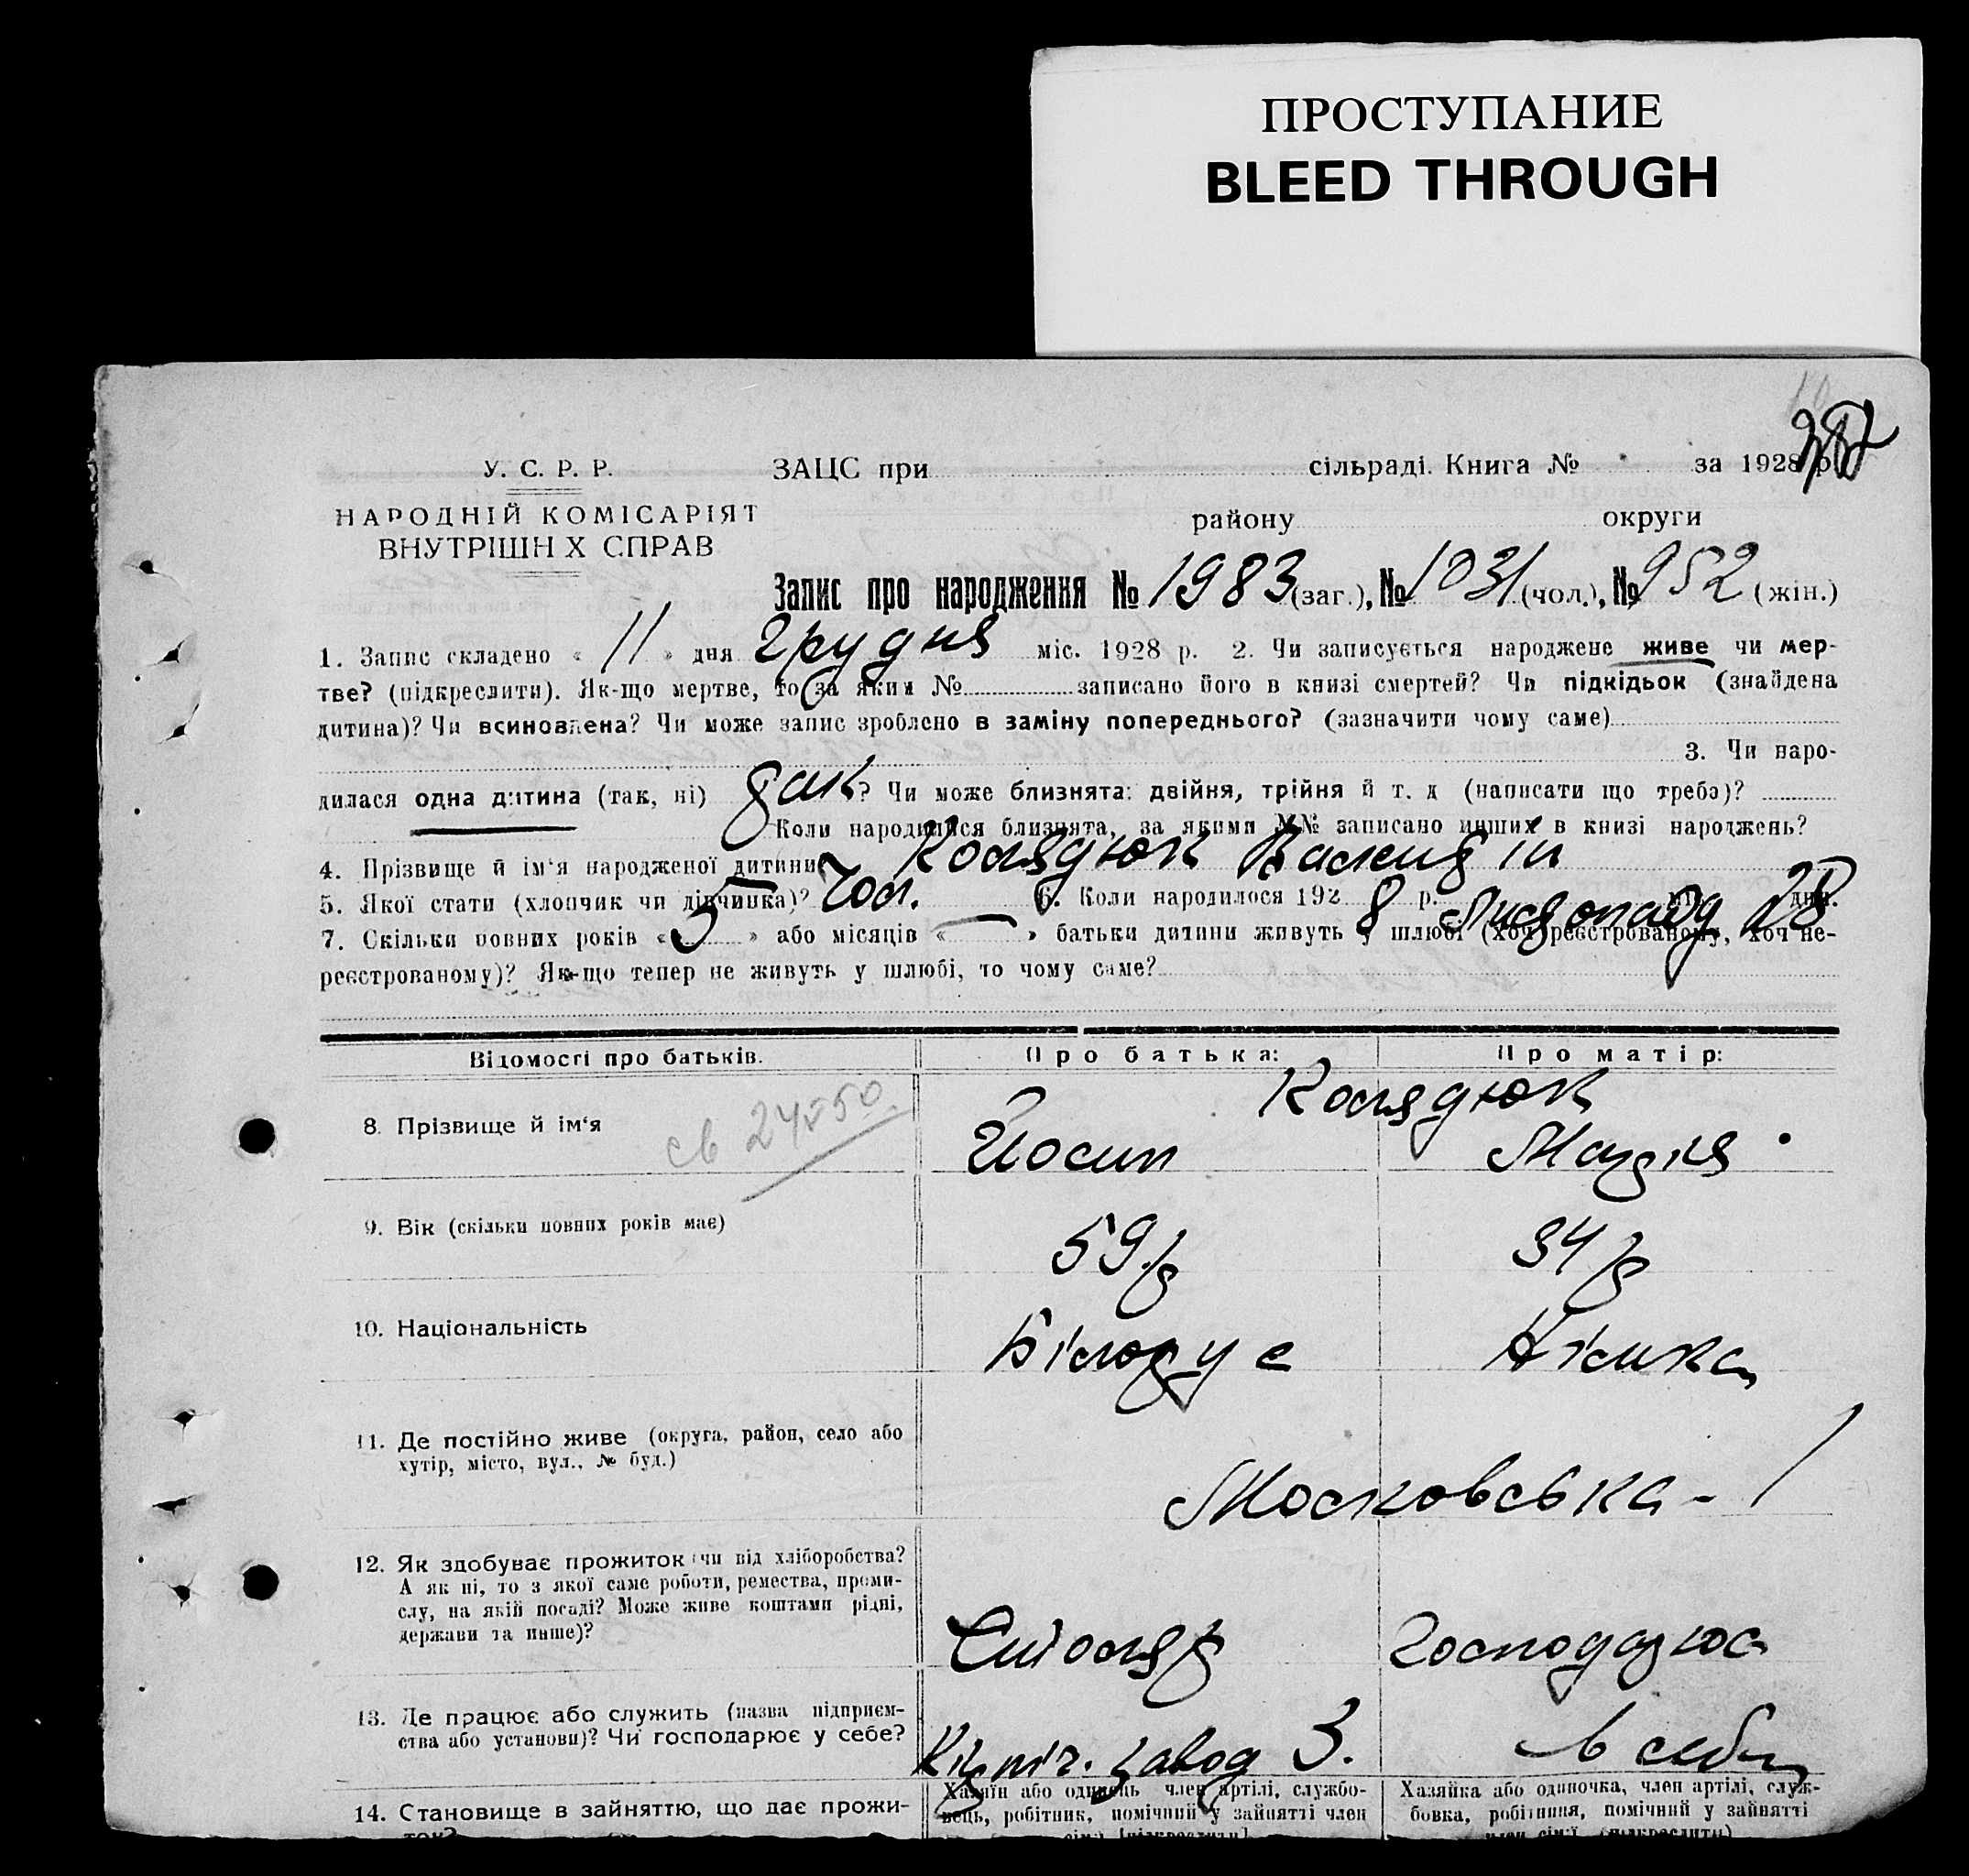 ПРОСТУПАНИЕ
BLEED THROUGH
У. С. Р. Р.
ЗАЦС при сільраді. Книга № за 1928 р
НАРОДНІЙ КОМІСАРІЯТ
району округи
ВНУТРІШН Х СПРАВ
Запис про народження № 1983 (заг.), № 1031 (чол.), № 952 (жін.)
1. Запис складено « 11 » дня грудня міс. 1928 р. 2. Чи записується народжене живе чи мер-
тве? (підкреслити). Як-що мертве, то за яким № записано його в книзі смертей? Чи підкідьок (знайдена
дитина)? Чи всиновлена? Чи може запис зроблено в заміну попереднього? (зазначити чому саме)
3. Чи наро-
дилася одна дитина (так, ні) так ? Чи може близнята: двійня, трійня й т. д (написати що треба)?
Коли народилися близнята, за якими №№ записано инших в книзі народжень?
4. Прізвище й ім'я народженої дитини Колядюк
5. Якої стати (хлопчик чи дівчинка)? Чол. 6. Коли народилося 192 8 р. Листопад 28 дня.
7. Скільки повних років « 5 » або місяців « — » батьки дитини живуть у шлюбі (хоч реєстрованому, хоч не-
реєстрованому)? Як-що тепер не живуть у шлюбі, то чому саме?
Відомості про батьків.
Про батька:
Про матір:
Колядюк
8. Прізвище й ім'я
св 24550
Йосип
Марія
9. Вік (скільки повних років має)
59 р
34 р
10. Національність
Білорус
Німка
11. Де постійно живе (округа, район, село або
хутір, місто, вул., № буд.)
Московська - 1
12. Як здобуває прожиток (чи від хліборобства?
А як ні, то з якої саме роботи, ремества, проми-
слу, на якій посаді? Може живе коштами рідні,
держави та инше)?
Столяр
Господарює
13. Де працює або служить (назва підприєм-
ства або установи)? Чи господарює у себе?
завод 3.
в себе
14. Становище в зайняттю, що дає прожи-
ток?
Хазяїн або одинець член артілі, службо-
вець, робітник, помічний у зайнятті член
сім'ї (підкреслити)
Хазяйка або одиночка, член артілі, служ-
бовка, робітниця, помічний у зайнятті
член сім'ї (підкреслити)